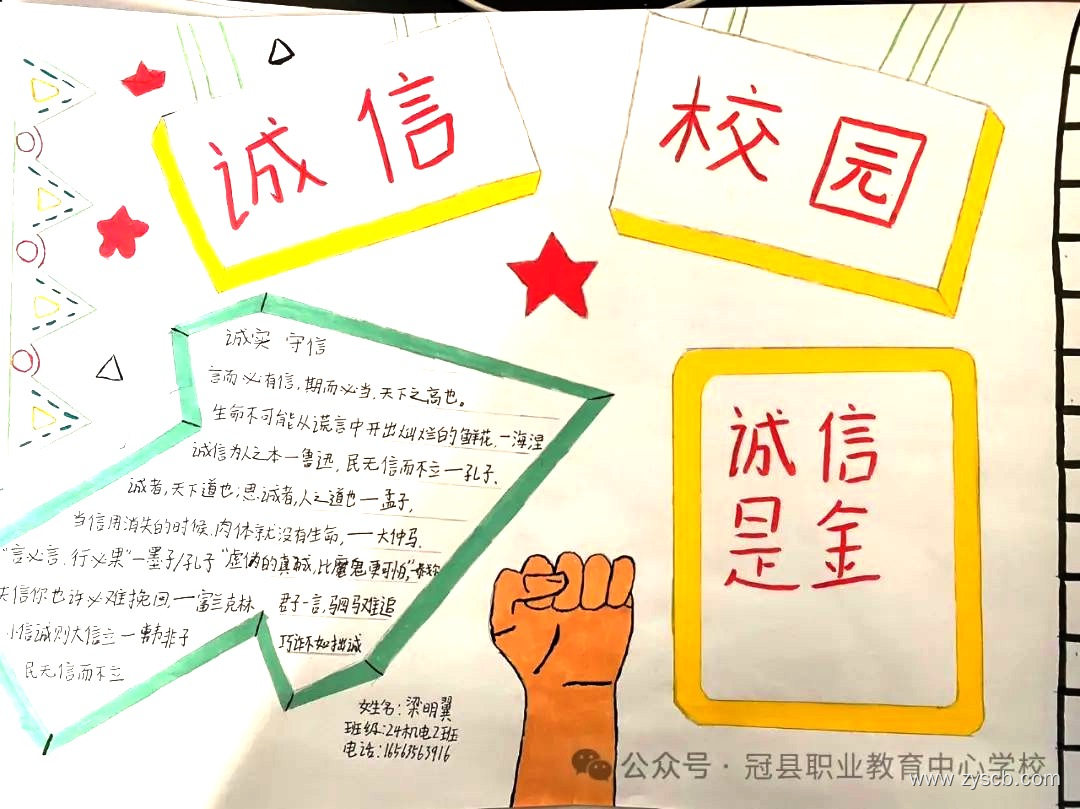 诚信
校园
诚实 守信
言而必有信,期而必当,天下之高也。
生命不可能从谎言中开出灿烂的鲜花.一海涅
诚信为人之本一鲁迅, 民无信而不立一孔子、
诚者,天下道也;思诚者,人之道也一孟子,
当信用消失的时候.肉体就没有生命,一一大仲马.
"言必言.行必果"一墨子/孔子 "虚伪的真诚,比魔鬼更可怕",
失信你也许必难挽回.一富兰克林 君子一言,驷马难追
小信诚则大信立一韩非子 巧诈不如拙诚
民无信而不立
诚信
是金
姓名:梁明翼
班级:24机电2班
电话:16563563916
公众号·冠县职业教育中心学校
www.zyscb.com